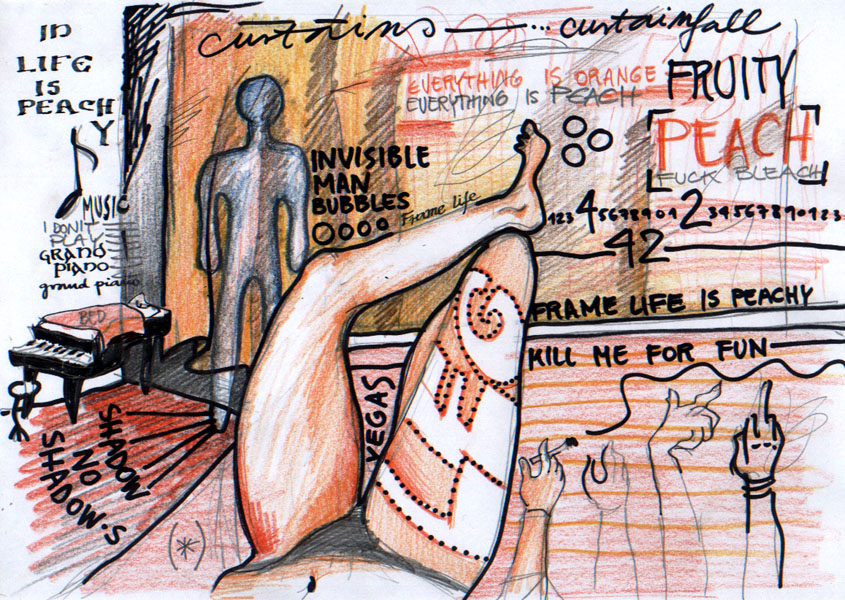 curtains — ... curtainfall
IN
LIFE
IS
PEACH
Y
MUSIC
I DON'T
PLAY
GRAND
PIANO
grand piano
BED
EVERYTHING IS ORANGE
EVERYTHING IS PEACH
FRUITY
[PEACH
FUCK BLEACH]
INVISIBLE
MAN
BUBBLES
Frame life
123 4 5678901 2 34567890123
42
FRAME LIFE IS PEACHY
KILL ME FOR FUN
VEGAS
SHADOW
NO
SHADOW'S
(*)